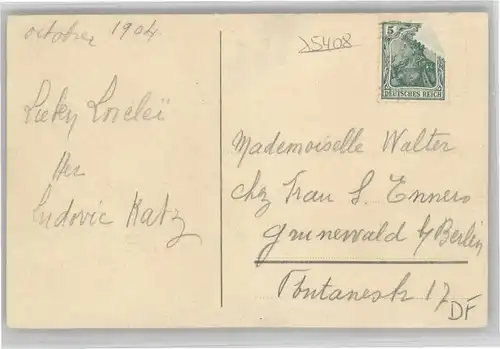 october 1904
Lucky Loreleï
Her
Ludovic Katz
25408
5
DEUTSCHES REICH
Mademoiselle Walter
chez Frau S. Enners
Grunewald b/Berlin
Fontanestr 17
DF